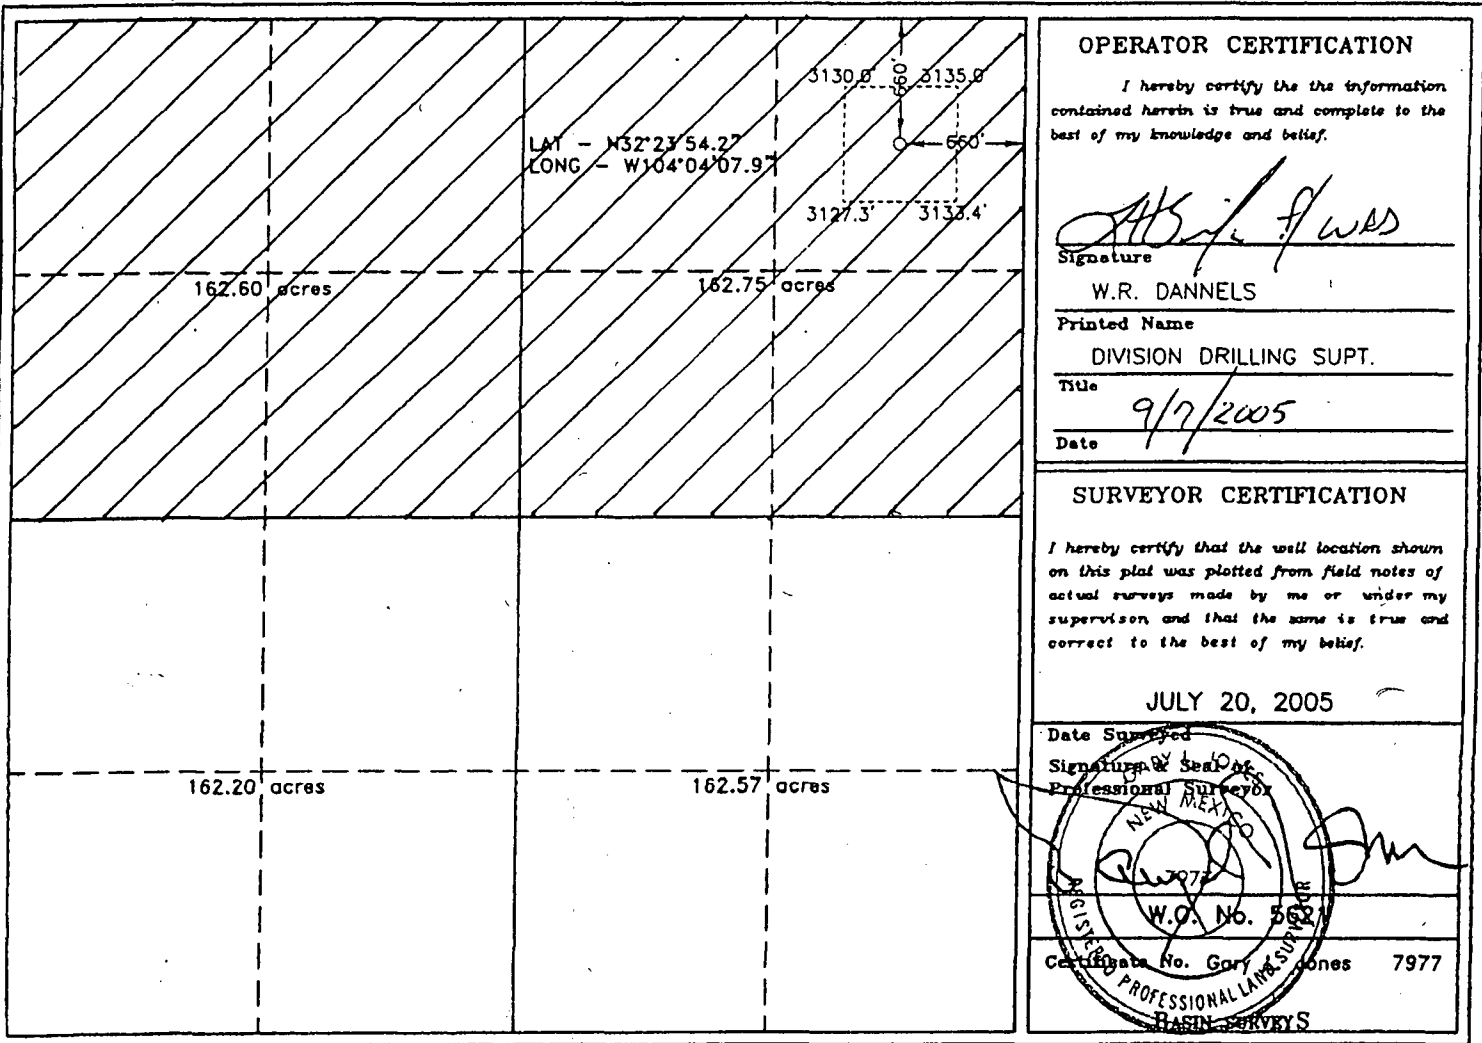 3130.0' 3135.0'
660'
LAT - N32°23'54.2"
LONG - W104°04'07.9"
660'
3127.3' 3133.4'
162.60 acres 162.75 acres
162.20 acres 162.57 acres
OPERATOR CERTIFICATION
I hereby certify the the information
contained herein is true and complete to the
best of my knowledge and belief.
Signature
W.R. DANNELS
Printed Name
DIVISION DRILLING SUPT.
Title
9/7/2005
Date
SURVEYOR CERTIFICATION
I hereby certify that the well location shown
on this plat was plotted from field notes of
actual surveys made by me or under my
supervison, and that the same is true and
correct to the best of my belief.
JULY 20, 2005
Date Surveyed
Signature & Seal of
Professional Surveyor
GARY L. JONES
NEW MEXICO
7977
REGISTERED PROFESSIONAL LAND SURVEYOR
W.O. No. 5621
Certificate No. Gary L. Jones 7977
BASIN SURVEYS